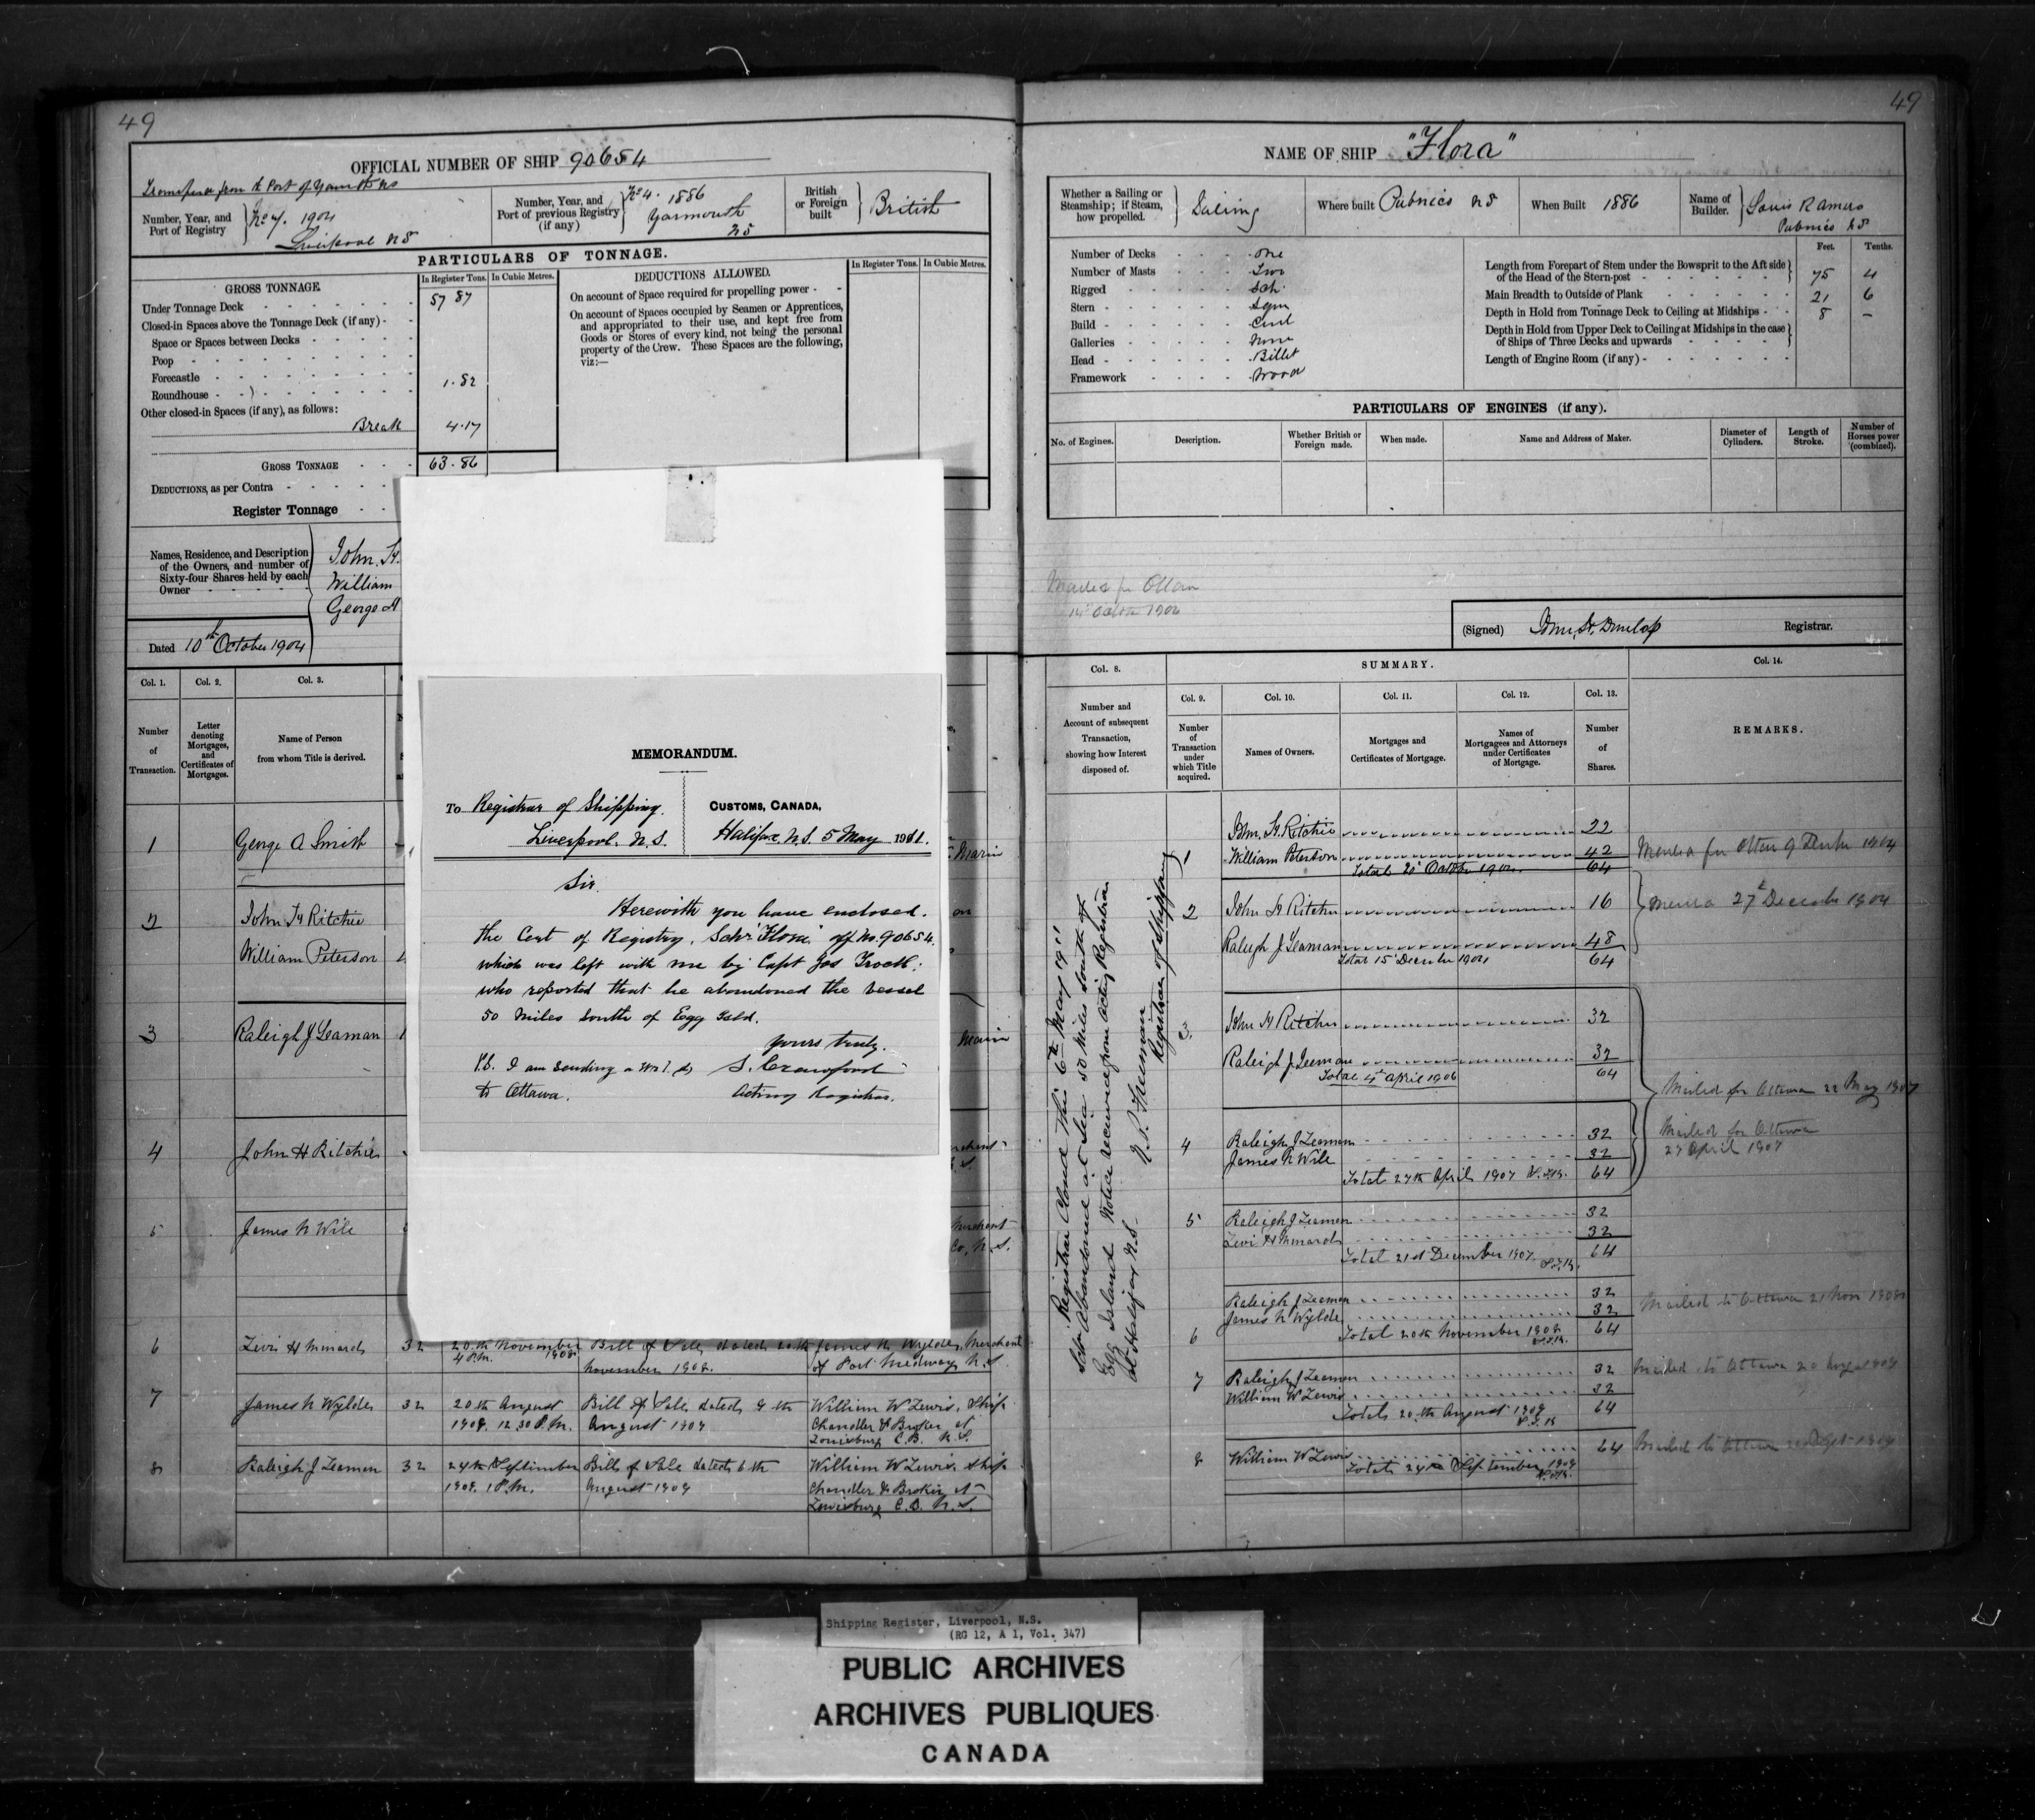 49
OFFICIAL NUMBER OF SHIP 90654
Number, Year, and Port of Registry
No 7. 1904
Liverpool NS
Number, Year, and Port of previous Registry (if any)
No 4. 1886
Yarmouth
NS
British or Foreign built
British
PARTICULARS OF TONNAGE.
GROSS TONNAGE
In Register Tons.
In Cubic Metres.
Under Tonnage Deck 57 87
Closed-in Spaces above the Tonnage Deck (if any)
Space or Spaces between Decks
Poop
Forecastle
Roundhouse 1.82
Other closed-in Spaces (if any), as follows:
Break 4.17
GROSS TONNAGE 63.86
DEDUCTIONS, as per Contra
Register Tonnage
DEDUCTIONS ALLOWED.
In Register Tons.
In Cubic Metres.
On account of Space required for propelling power
On account of Spaces occupied by Seamen or Apprentices,
and appropriated to their use, and kept free from
Goods or Stores of every kind, not being the personal
property of the Crew. These Spaces are the following,
viz:—
Names, Residence, and Description
of the Owners, and number of
Sixty-four Shares held by each
Owner
John. H.
William
George A
Dated 10th October 1904
Col. 1.
Col. 2.
Col. 3.
Number of Transaction.
Letter denoting Mortgages, and Certificates of Mortgages.
Name of Person from whom Title is derived.
1 George A Smith
2 John H Ritchie
William Peterson
3 Raleigh J Leaman
4 John H Ritchie
5 James N Wile
6 Levi H Minard 32 20th November 1908 4 P.M. Bill of Sale dated 20th November 1908. James N Wylde, Merchant of Port Medway N.S.
7 James N Wylde 32 20th August 1909. 12.30 P.M. Bill of Sale dated 4th August 1909 William W Lewis, Ship Chandler & Broker of Louisburg C.B. N.S.
8 Raleigh J Leamen 32 24th September 1909. 1 P.M. Bill of Sale dated 6th August 1909 William W Lewis, Ship Chandler & Broker of Louisburg C.B. N.S.
MEMORANDUM.
To Registrar of Shipping.
Liverpool. N.S.
CUSTOMS, CANADA,
Halifax, N.S. 5 May 1911.
Sir
Herewith you have enclosed.
the Cert of Registry. Schr "Flora" off No. 90654.
which was left with me by Capt Jas
who reported that he abandoned the vessel
50 miles south of Egg Isld.
Yours truly.
S. Crawford
Acting Registrar.
P.S. I am sending a
to Ottawa.
49
NAME OF SHIP "Flora"
Whether a Sailing or Steamship; if Steam, how propelled.
Sailing
Where built Pubnico NS
When Built 1886
Name of Builder.
Pubnico NS
Number of Decks One
Number of Masts Two
Rigged Sch.
Stern Sqm
Build Carvl
Galleries None
Head Billet
Framework Wood
Feet.
Tenths.
Length from Forepart of Stem under the Bowsprit to the Aft side of the Head of the Stern-post 75 4
Main Breadth to Outside of Plank 21 6
Depth in Hold from Tonnage Deck to Ceiling at Midships 8 –
Depth in Hold from Upper Deck to Ceiling at Midships in the case of Ships of Three Decks and upwards
Length of Engine Room (if any)
PARTICULARS OF ENGINES (if any).
No. of Engines.
Description.
Whether British or Foreign made.
When made.
Name and Address of Maker.
Diameter of Cylinders.
Length of Stroke.
Number of Horses power (combined).
Mailed for Ottawa
(Signed) Registrar.
Col. 8.
SUMMARY.
Col. 14.
Number and Account of subsequent Transaction, showing how Interest disposed of.
Col. 9.
Number of Transaction under which Title acquired.
Col. 10.
Names of Owners.
Col. 11.
Mortgages and Certificates of Mortgage.
Col. 12.
Names of Mortgagees and Attorneys under Certificates of Mortgage.
Col. 13.
Number of Shares.
REMARKS.
Registrar Closed this 6th May 1911
Schr Abandoned at Sea 50 Miles South of
Egg Island Notice received from Acting Registrar
at Halifax N.S.
Registrar of Shipping
1 John. H. Ritchie 22
William Peterson 42
Total 20 October 1904. 64
2 John H Ritchie 16
Raleigh J Leaman 48
Total 15 December 1904 64
27 December 1904
3 John H Ritchie 32
Raleigh J Leeman 32
Total 4th April 1906 64
Mailed for Ottawa 22 May 1907
4 Raleigh J Leamen 32
James N Wile 32
Total 27th April 1907 64
Mailed for Ottawa
27 April 1907
5 Raleigh J Leamen 32
Levi H Minard 32
Total 21st December 1907. 64
6 Raleigh J Leamen 32
James N Wylde 32
Total 20th November 1908 64
Mailed to Ottawa 21 Nov 1908
7 Raleigh J Leamen 32
William W Lewis 32
Total 20th August 1909 64
Mailed to Ottawa
8 William W Lewis 64
Total 24th September 1909
Mailed to Ottawa
Shipping Register, Liverpool, N.S.
(RG 12, A 1, Vol. 347)
PUBLIC ARCHIVES
ARCHIVES PUBLIQUES
CANADA